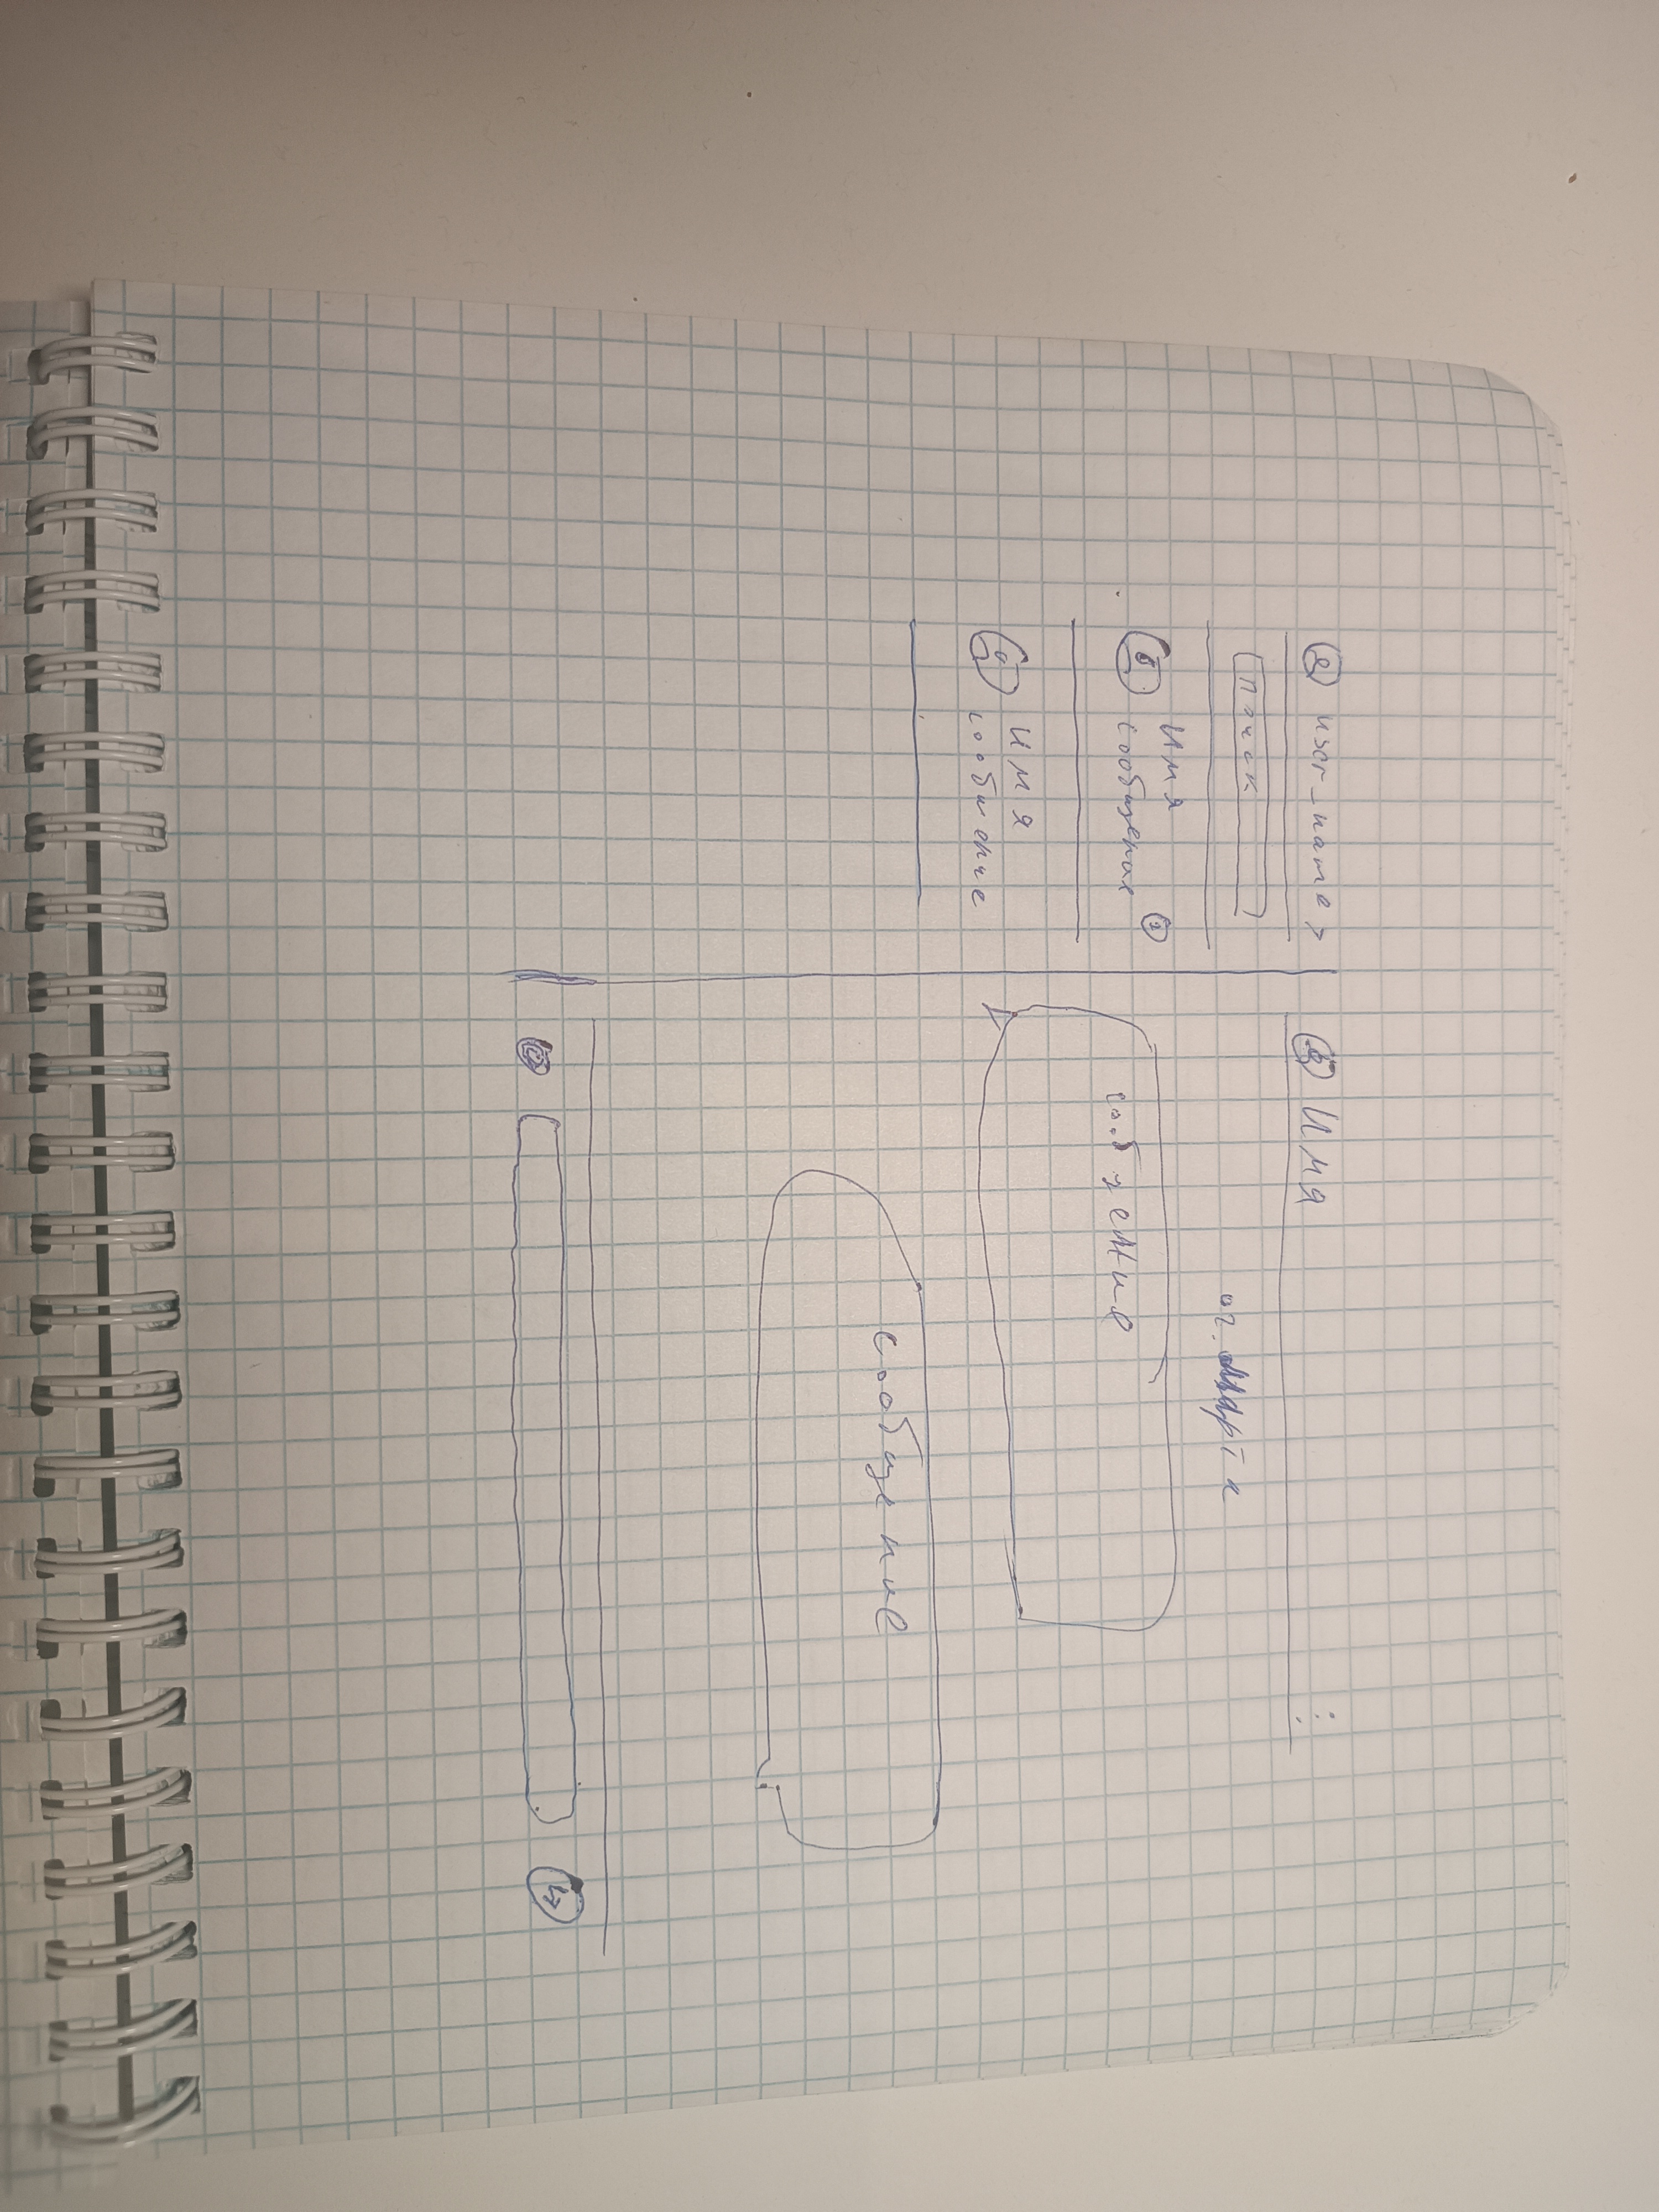 user_name >
Поиск
Имя
сообщение
2
Имя
сообщение
Имя
марта
сообщение
сообщение